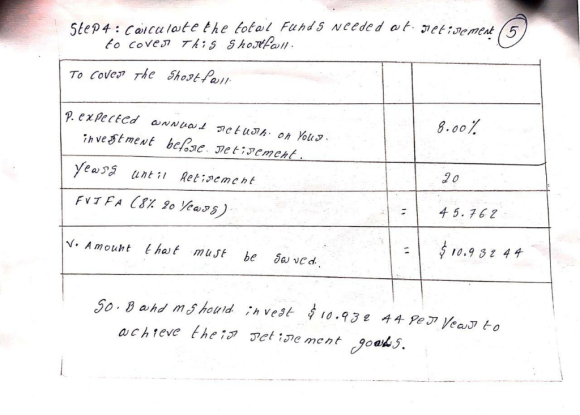 Step 4: Calculate the total Funds Needed at retirement (5)
to cover This Shortfall.
To Cover The Shortfall
P. expected annual return on Your
investment before retirement.
8.00%
Years until Retirement
20
FVIFA (8% 20 Years)
=
45.762
V. Amount that must be saved.
=
$ 10.932 44
So. B and m Should invest $ 10.932 44 Per Year to
achieve their retirement goals.